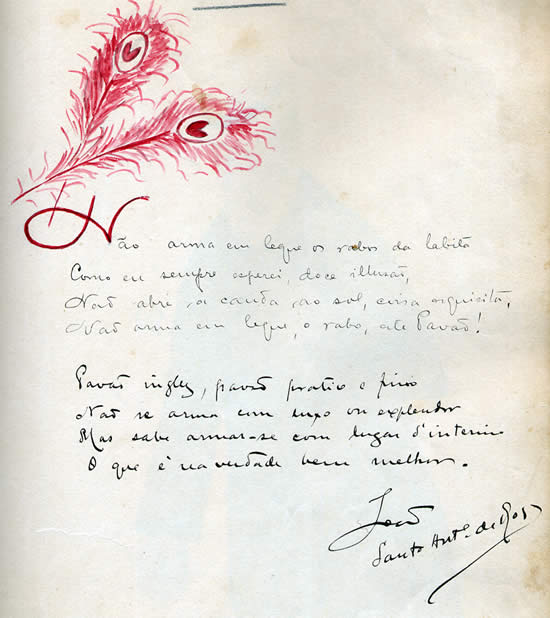 Não arma em leque os rabos da labita
Como eu sempre esperei, doce illusão,
Não abri a cauda ao sol, coisa exquisita,
Não arma em leque, o rabo, este Pavão!
Pavão inglez, pavão pratico e fino
Não se arma em luxo ou explendor
Mas sabe armar-se com lugar d'interino
O que é na verdade bem melhor.
João
Santo Antº. de